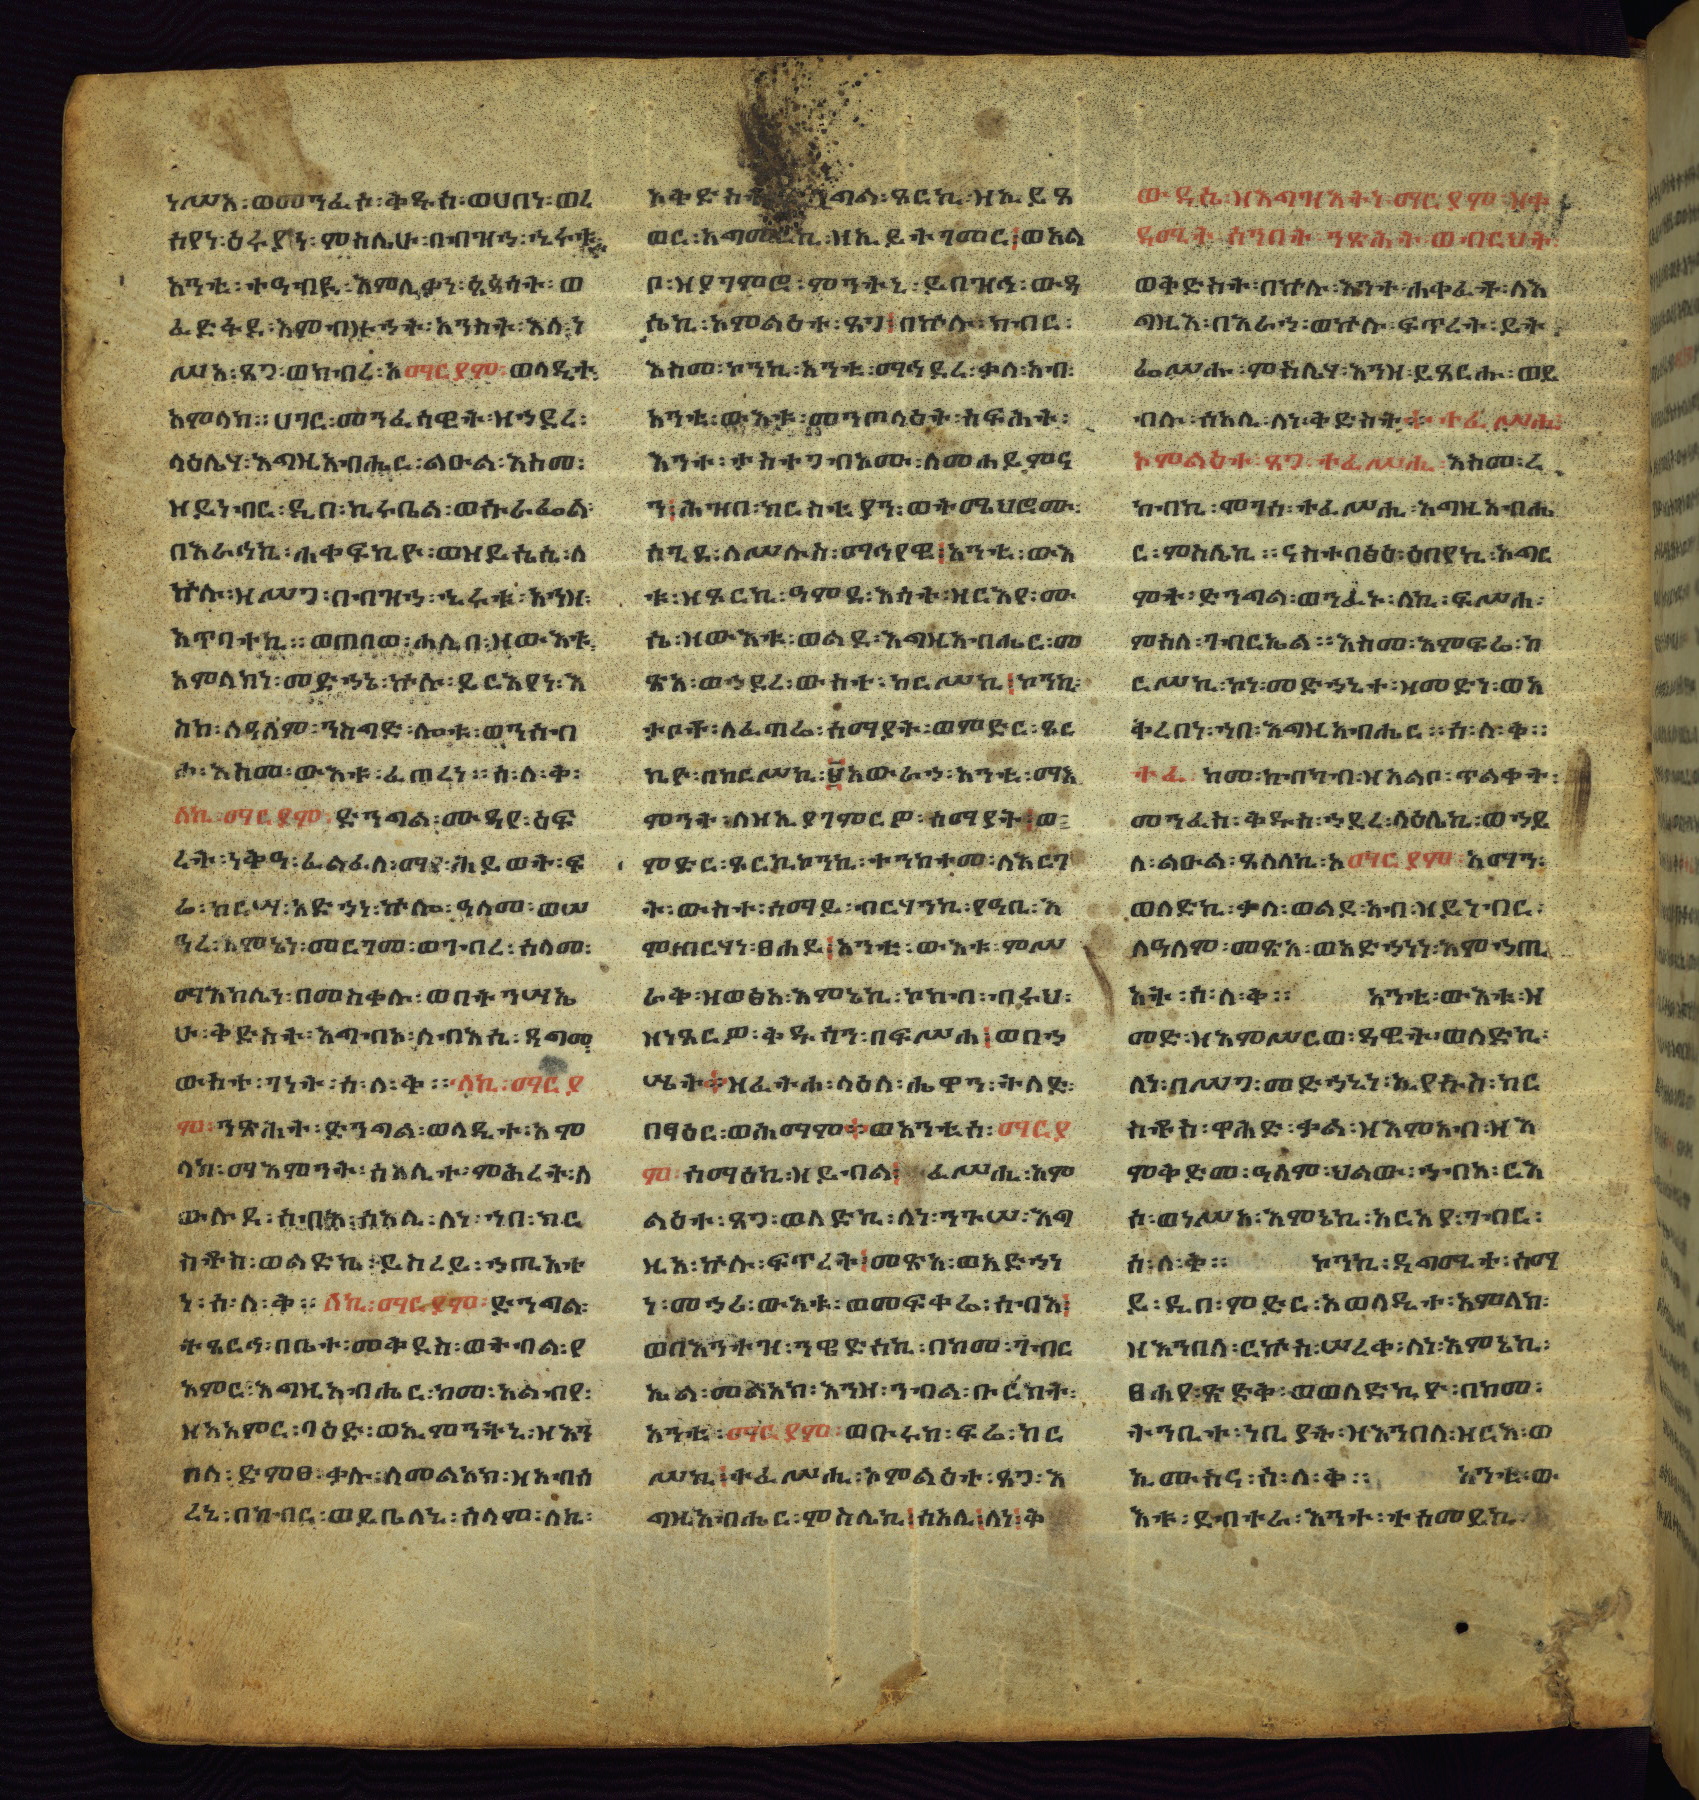 ነሥአ፡ወመንፈስ፡ቅዱስ፡ወሀበነ፡ወረ
ሰየነ፡ዕሩያነ፡ምስሌሁ፡በብዝኀ፡ኂሩቱ፡
አንቲ፡ተዓብዪ፡እምሊቃነ፡ጳጳሳት፡ወ
ፈድፋደ፡እምብዙኃት፡አንስት፡እለ፡ነ
ሥአ፡ጸጋ፡ወክብረ፡ኦማርያም፡ወላዲተ፡
አምላክ፡፡ሀገር፡መንፈሳዊት፡ዘኀደረ፡
ላዕሌሃ፡እግዚአብሔር፡ልዑል፡እስመ፡
ዘይነብር፡ዲበ፡ኪሩቤል፡ወሱራፌል፡
በእራኅኪ፡ሐቀፍኪዮ፡ወዘይሴሲ፡ለ
ኵሉ፡ዘሥጋ፡በብዝኀ፡ኂሩቱ፡አኀዘ፡
አጥባትኪ፡፡ወጠበወ፡ሐሊበ፡ዘውእቱ፡
አምላክነ፡መድኀኔ፡ኵሉ፡ይርእየነ፡እ
ስከ፡ለዓለም፡ንስግድ፡ሎቱ፡ወንሰብ
ሖ፡እስመ፡ውእቱ፡ፈጠረነ፡፡ሰ፡ለ፡ቅ፡
ለኪ፡ማርያም፡ድንግል፡ሙዳየ፡ዕፍ
ረት፡ነቅዓ፡ፈልፈለ፡ማየ፡ሕይወት፡ፍ
ሬ፡ከርሣ፡አድኀነ፡ኵሎ፡ዓለመ፡ወሠ
ዓረ፡እምኔነ፡መርገመ፡ወገብረ፡ሰላመ፡
ማእከሌነ፡በመስቀሉ፡ወበትንሣኤ
ሁ፡ቅድስት፡አግብኦ፡ለብእሲ፡ዳግመ፡
ውስተ፡ገነት፡ሰ፡ለ፡ቅ፡፡ለኪ፡ማርያ
ም፡ንጽሕት፡ድንግል፡ወላዲተ፡አም
ላክ፡ማእምንት፡ሰአሊተ፡ምሕረት፡ለ
ውሉደ፡ሰብእ፡ሰአሊ፡ለነ፡ኀበ፡ክር
ስቶስ፡ወልድኪ፡ይስረይ፡ኀጢአተ
ነ፡ሰ፡ለ፡ቅ፡፡ለኪ፡ማርያም፡ድንግል፡
ትጼርኅ፡በቤተ፡መቅደስ፡ወትብል፡የ
አምር፡እግዚአብሔር፡ከመ፡አልብየ፡
ዘአአምር፡ባዕድ፡ወኢምንትኒ፡ዘእን
በለ፡ድምፀ፡ቃሉ፡ለመልአክ፡ዘአብሰ
ረኒ፡በክብር፡ወይቤለኒ፡ሰላም፡ለኪ፡
ኦቅድስት፡ድንግል፡ጾርኪ፡ዘኢይጸ
ወር፡አግመርኪ፡ዘኢይትገመር፡ወአል
ቦ፡ዘያገምሮ፡ምንትኒ፡ይበዝኅ፡ውዳ
ሴኪ፡ኦምልዕተ፡ጸጋ፡በኵሉ፡ክብር፡
እስመ፡ኮንኪ፡አንቲ፡ማኅደረ፡ቃለ፡አብ፡
አንቲ፡ውእቱ፡መንጦላዕት፡ስፍሕት፡
እንተ፡ታስተጋብኦሙ፡ለመሐይምና
ን፡ሕዝበ፡ክርስቲያን፡ወትሜህሮሙ፡
ስጊደ፡ለሥሉስ፡ማኅየዊ፡አንቲ፡ውእ
ቱ፡ዘጾርኪ፡ዓምደ፡እሳት፡ዘርእየ፡ሙ
ሴ፡ዘውእቱ፡ወልደ፡እግዚአብሔር፡መ
ጽአ፡ወኀደረ፡ውስተ፡ከርሥኪ፡ኮንኪ፡
ታቦት፡ለፈጣሬ፡ሰማያት፡ወምድር፡ጾር
ኪዮ፡በከርሥኪ፡፱አውራኀ፡አንቲ፡ማእ
ምንት፡ለዘኢያገምርዎ፡ሰማያት፡ወ
ምድር፡ጾርኪ፡ኮንኪ፡ተንከተመ፡ለዕርገ
ት፡ውስተ፡ሰማይ፡ብርሃንኪ፡የዓቢ፡እ
ምብርሃነ፡ፀሐይ፡አንቲ፡ውእቱ፡ምሥ
ራቅ፡ዘወፅአ፡እምኔኪ፡ኮከብ፡ብሩህ፡
ዘነጸርዎ፡ቅዱሳን፡በፍሥሐ፡ወበኀ
ሤት፡ዘፈትሐ፡ላዕለ፡ሔዋን፡ትለድ፡
በፃዕር፡ወሕማም፡ወአንቲሰ፡ማርያ
ም፡ሰማዕኪ፡ዘይብል፡ተፈሥሒ፡ኦም
ልዕተ፡ጸጋ፡ወለድኪ፡ለነ፡ንጉሠ፡እግ
ዚአ፡ኵሉ፡ፍጥረት፡መጽአ፡ወአድኀነ
ነ፡መኀሪ፡ውእቱ፡ወመፍቀሬ፡ሰብእ፡
ወበእንተዝ፡ንዌድሰኪ፡በከመ፡ገብር
ኤል፡መልአክ፡እንዘ፡ንብል፡ቡርክት፡
አንቲ፡ማርያም፡ወቡሩክ፡ፍሬ፡ከር
ሥኪ፡ተፈሥሒ፡ኦምልዕተ፡ጸጋ፡እ
ግዚአብሔር፡ምስሌኪ፡ሰአሊ፡ለነ፡ቅ
ውዳሴ፡ዘእግዝእትነ፡ማርያም፡ዘቀ
ዳሚት፡ሰንበት፡ንጽሕት፡ወብርህት፡
ወቅድስት፡በኵሉ፡እንተ፡ሐቀፈት፡ለእ
ግዚእ፡በእራኀ፡ወኵሉ፡ፍጥረት፡ይት
ፌሣሕ፡ምስሌሃ፡እንዘ፡ይጼርሑ፡ወይ
ብሉ፡ሰአሊ፡ለነ፡ቅድስት፡ተፈሥሒ፡
ኦምልዕተ፡ጸጋ፡ተፈሥሒ፡እስመ፡ረ
ከብኪ፡ሞገሰ፡ተፈሥሒ፡እግዚአብሔ
ር፡ምስሌኪ፡፡ናስተበፅዕ፡ዕበየኪ፡ኦግር
ምት፡ድንግል፡ወንፌኑ፡ለኪ፡ፍሥሐ፡
ምስለ፡ገብርኤል፡፡እስመ፡እምፍሬ፡ከ
ርሥኪ፡ኮነ፡መድኀኒተ፡ዘመድነ፡ወአ
ቅረበነ፡ኀበ፡እግዚአብሔር፡፡ሰ፡ለ፡ቅ፡፡
ተፈ፡ከመ፡ከብካብ፡ዘአልቦ፡ጥልቀት፡
መንፈስ፡ቅዱስ፡ኀደረ፡ላዕሌኪ፡ወኀይ
ለ፡ልዑል፡ጸለለኪ፡ኦማርያም፡አማን፡
ወለድኪ፡ቃለ፡ወልደ፡አብ፡ዘይነብር፡
ለዓለም፡መጽአ፡ወአድኀነነ፡እምኀጢ
አት፡ሰ፡ለ፡ቅ፡፡ አንቲ፡ውእቱ፡ዘ
መድ፡ዘእምሥርወ፡ዳዊት፡ወለድኪ፡
ለነ፡በሥጋ፡መድኀኒነ፡ኢየሱስ፡ክር
ስቶስ፡ዋሕድ፡ቃል፡ዘእምአብ፡ዘእ
ምቅድመ፡ዓለም፡ህልው፡ኀብአ፡ርእ
ሰ፡ወነሥአ፡እምኔኪ፡አርአያ፡ገብር፡
ሰ፡ለ፡ቅ፡፡ ኮንኪ፡ዳግሚተ፡ሰማ
ይ፡ዲበ፡ምድር፡ኦወላዲተ፡አምላክ፡
ዘእንበለ፡ርኵስ፡ሠረቀ፡ለነ፡እምኔኪ፡
ፀሐየ፡ጽድቅ፡ወወለድኪዮ፡በከመ፡
ትንቢተ፡ነቢያት፡ዘእንበለ፡ዘርእ፡ወ
ኢሙስና፡ሰ፡ለ፡ቅ፡፡ አንቲ፡ው
እቱ፡ደብተራ፡እንተ፡ተሰመይኪ